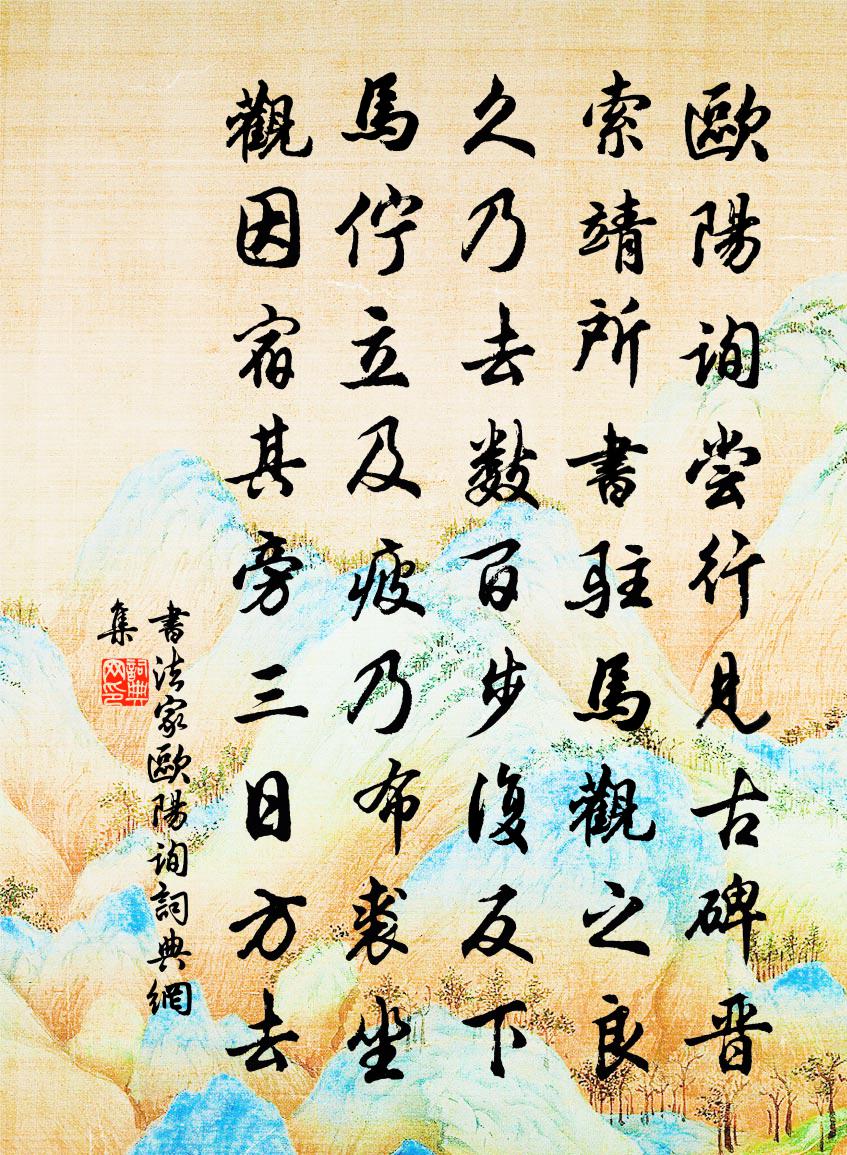 歐陽詢尝行見古碑晋
索靖所書駐馬觀之良
久乃去數百步復反下
馬佇立及疲乃布裘坐
觀因宿其旁三日方去
書法家歐陽詢詞典網
集
詞典
网印